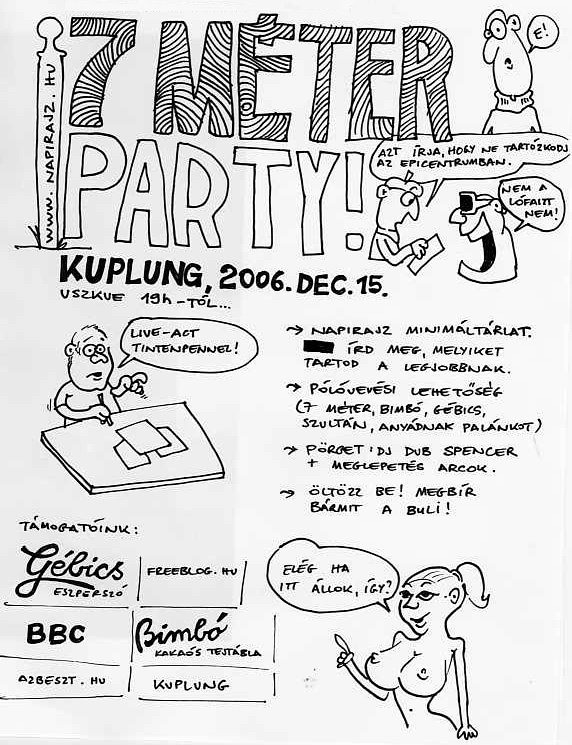 WWW.NAPIRAJZ.HU
7 MÉTER
PARTY!
E!
AZT ÍRJA, HOGY NE TARTÓZKODJ
AZ EPICENTRUMBAN.
NEM A
LÓFAITT
NEM!
KUPLUNG, 2006.DEC.15.
USZKVE 19h-TÓL...
LIVE-ACT
TINTENPENNEL!
→ NAPIRAJZ MINIMÁLTÁRLAT.
ÍRD MEG, MELYIKET
TARTOD A LEGJOBBNAK.
→ PÓLÓVEVÉSI LEHETŐSÉG
(7 MÉTER, BIMBÓ, GÉBICS,
SZULTÁN, ANYÁDNAK PALÁNKOT)
→ PÖRGET: DJ DUB SPENCER
+ MEGLEPETÉS ARCOK.
→ ÖLTÖZZ BE! MEGBÍR
BÁRMIT A BULI!
TÁMOGATÓINK:
Gébics
ESZPERSZÓ
FREEBLOG.HU
BBC
Bimbó
KAKAÓS TEJTÁBLA
AZBESZT.HU
KUPLUNG
ELÉG HA
ITT ÁLLOK, ÍGY?